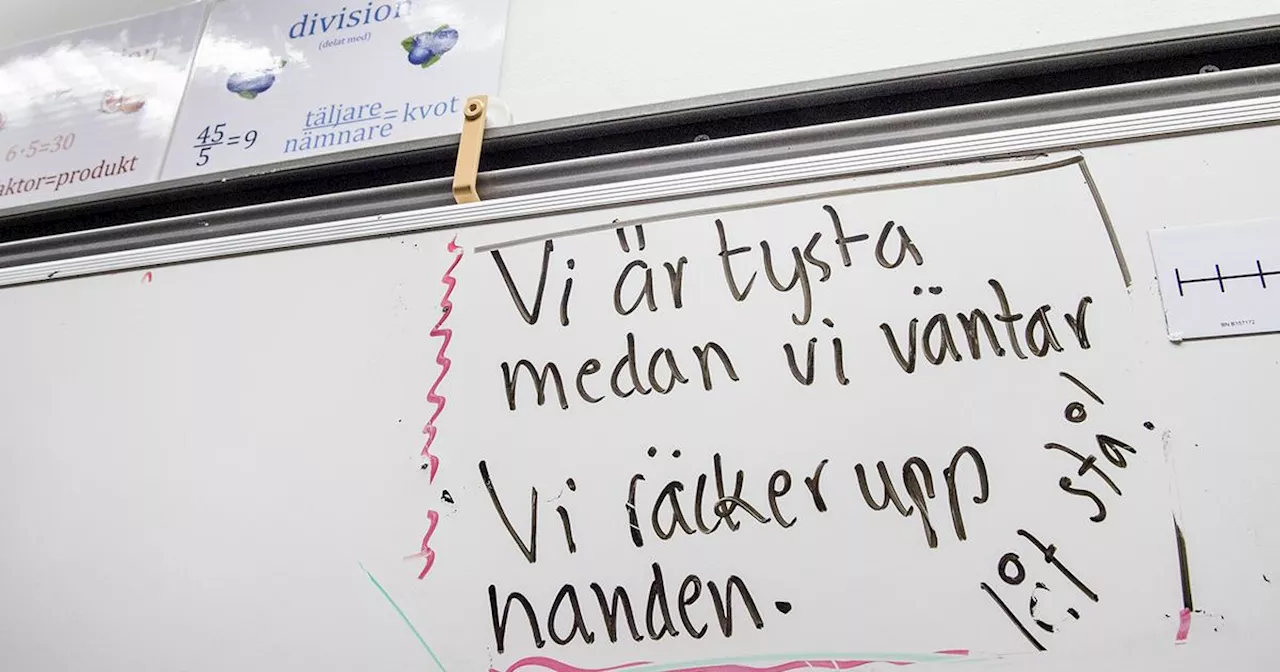 division
(delat med)
täljare
nämnare
=kvot
45
5
=9
6·5=30
aktor=produkt
Vi är tysta
medan vi väntar
Vi räcker upp
handen.
låt stå!
BN B157172